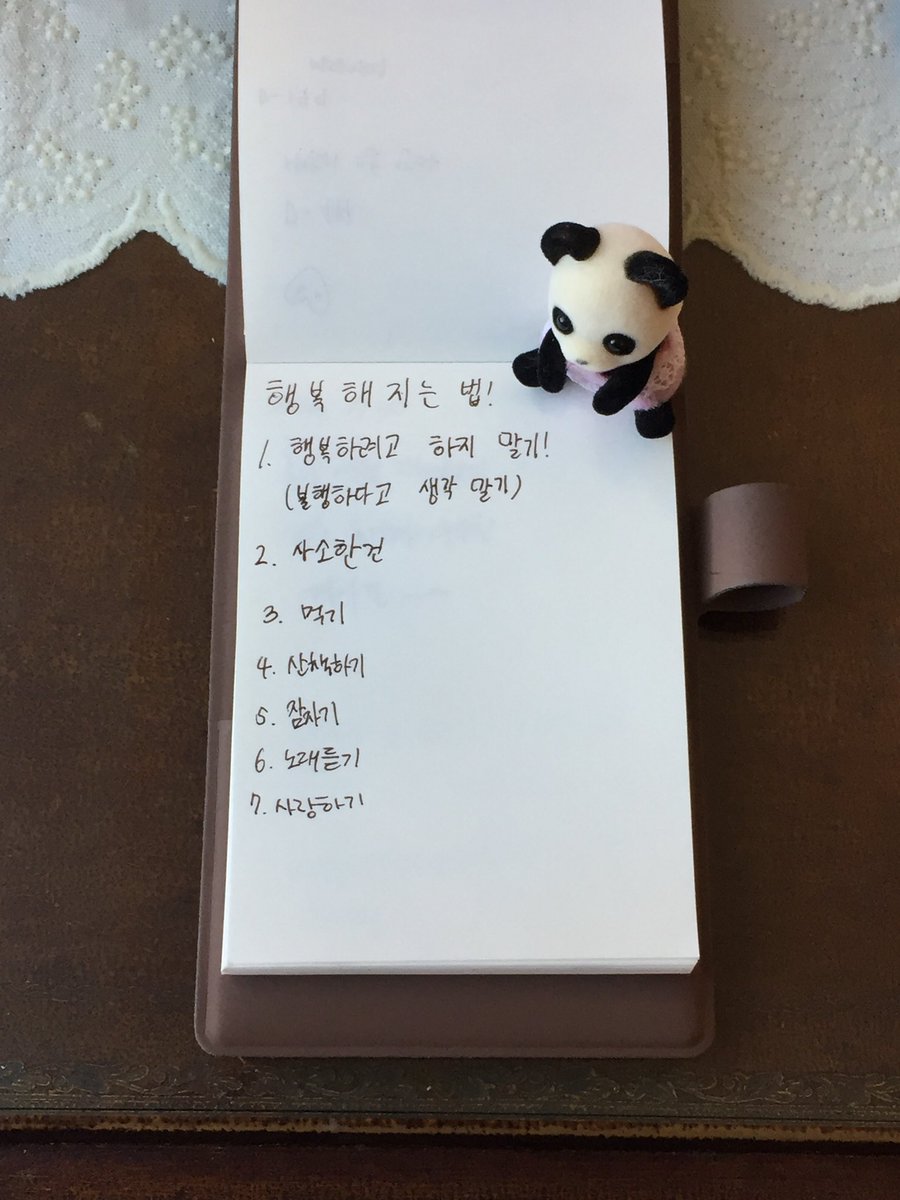 행복해지는 법!
1. 행복하려고 하지 말기!
(불행하다고 생각 말기)
2. 사소한건
3. 먹기
4. 산책하기
5. 잠자기
6. 노래듣기
7. 사랑하기